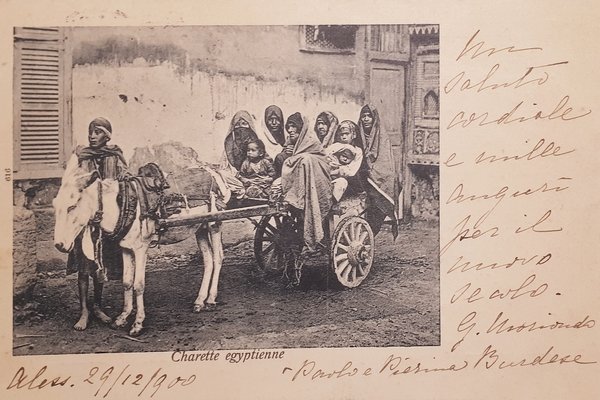 Un
saluto
cordiale
e mille
auguri
per il
nuovo
secolo.
G. Moriondo
616
Charette egyptienne
Aless. 29/12/900
- Paolo e Pierina Burdese